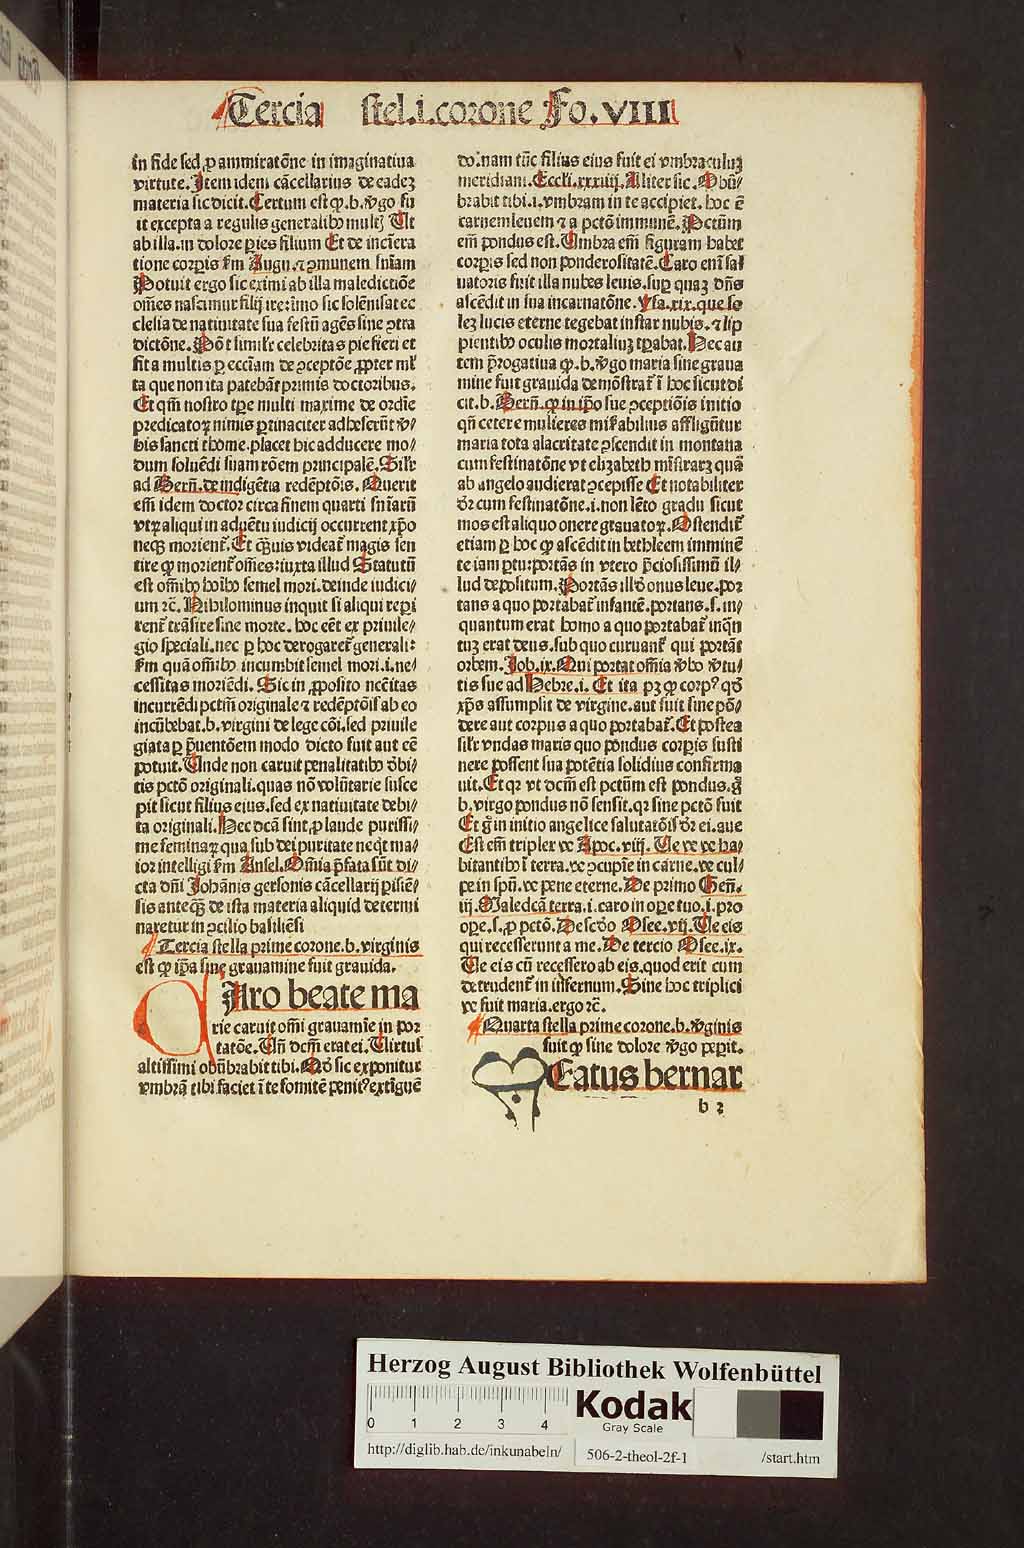 Tercia stel.i.corone Fo.VIII
in fide sed ꝓ ammiratōne in imaginatiua
virtute. Item idem cācellarius de eadeꝫ
materia sic dicit. Certum est ꝙ.b.v̄go fu
it excepta a regulis generalibꝰ multꝭ Ut
ab illa.in dolore ꝑies filium Et de incīera
tione corꝑis ẜm Augu.⁊ ꝯmunem snīam
Potuit ergo sic eximi ab illa maledictiōe
om̄es nascimur filij ire:imo sic solēnisat ec
clesia de natiuitate sua festū agēs sine ꝯtra
dictōne. Pōt similr̄ celebritas pie fieri et
fit a multis ꝑ ecc̄iam de ꝯceptōe ꝓpter ml̄
ta que non ita patebāt primis doctoribus.
Et qm̄ nostro tꝑe multi maxime de ordīe
predicatoꝝ nimis ꝑtinaciter adheserūt v̄
bis sancti thome.placet hic adducere mo⸗
dum soluēdi suam rōem principalē. Silr̄
ad Bern̄.de indigētia redēptōis. Querit
em̄ idem doctor circa finem quarti snīarū
vtꝝ aliqui in aduētu iudicij occurrent xp̄o
neqꝫ morient̄. Et q̄uis videat̄ magis sen
tire ꝙ morient̄ om̄es:iuxta illud Statutū
est om̄ibꝰ hoībꝰ semel mori.deinde iudici⸗
um ⁊c̄. Nihilominus inquit si aliqui reꝑi
rent̄ trāsire sine morte.hoc eēt ex priuile⸗
gio speciali.nec ꝑ hoc derogaret̄ generali:
ẜm quā om̄ibꝰ incumbit semel mori.i.ne⸗
cessitas moriēdi. Sic in ꝓposito nc̄eitas
incurrēdi pctm̄ originale ⁊ redēptōis ab eo
incūbebat.b.virgini de lege cōi.sed priuile
giata ꝑ p̄uentōem modo dicto fuit aut eē
potuit. Unde non caruit penalitatibꝰ debi⸗
tis pctō originali.quas nō volūtarie susce
pit sicut filius eius.sed ex natiuitate debi⸗
ta originali. Hec dcā sint ꝓ laude purissi⸗
me feminaꝝ qua sub dei puritate neqt̄ ma⸗
ior intelligi ẜm Ansel. Om̄ia p̄fata sūt di⸗
cta dn̄i Johānis gersonis cācellarij ꝑisiē⸗
sis anteq̄ꝫ de ista materia aliquid determi
naretur in ꝯcilio basiliēsi
Tercia stella prime corone.b.virginis
est ꝙ ip̄a sine grauamine fuit grauida.
Aro beate ma
rie caruit om̄i grauamīe in por
tatōe. Un̄ dcm̄ erat ei. Uirtus
altissimi obūbrabit tibi. Qd̄ sic exponitur
vmbrā tibi faciet ī te fomitē penitꝰ extīguē
do.nam tūc filius eius fuit ei vmbraculuꝫ
meridiani. Eccli.xxxiiij. Aliter sic. Obū⸗
brabit tibi.i.vmbram in te accipiet.hoc ē
carnem leuem ⁊ a pctō immunē. Pctūm
em̄ pondus est. Umbra em̄ figuram habet
corꝑis sed non ponderositatē. Caro enī sal
uatoris fuit illa nubes leuis.suꝑ quaꝫ dn̄s
ascēdit in sua incarnatōne. Ysa.xix.que so
leꝫ lucis eterne tegebat instar nubis.⁊ lip
pientibꝰ oculis mortaliuꝫ tꝑabat. Hec au
tem p̄rogatiua ꝙ.b.v̄go maria sine graua
mine fuit grauida demōstrat̄ ī hoc sicut di
cit.b. Bern̄.ꝙ in ip̄o sue ꝯceptiōis initio
qn̄ cetere mulieres mir̄abilius affligūtur
maria tota alacritate ꝯscendit in montana
cum festinatōne vt elizabeth mīstraret quā
ab angelo audierat ꝯcepisse Et notabiliter
dr̄ cum festinatōne.i.non lēto gradu sicut
mos est aliquo onere grauatoꝝ. Ostendit̄
etiam ꝑ hoc ꝙ ascēdit in bethleem imminē
te iam ꝑtu:portās in vtero p̄ciosissimū il⸗
lud depositum. Portās illd̄ onus leue.por
tans a quo portabat̄ infantē.portans.s.in⸗
quantum erat homo a quo portabat̄ inq̄n
tuꝫ erat deus.sub quo curuant̄ qui portāt
orbem. Job.ix. Qui portat om̄ia v̄bo v̄tu⸗
tis sue ad Hebre.i. Et ita pꝫ ꝙ corpꝰ qd̄
xp̄s assumpsit de virgine.aut fuit sine pō⸗
dere aut corpus a quo portabat̄. Et postea
silr̄ vndas maris quo pondus corꝑis susti
nere possent sua potētia solidius confirma
uit. Et qꝛ vt dcm̄ est pctum est pondus.g̊
b.virgo pondus nō sensit.qꝛ sine pctō fuit
Et g̊ in initio angelice salutatōis dr̄ ei.aue
Est em̄ triplex ve Apoc.viij. Ue ve ve ha⸗
bitantibꝰ ī terra.ve ꝯcupīe in carne.ve cul⸗
pe in spū.ve pene eterne. De primo Gen̄.
iij. Maledcā terra.i.caro in oꝑe tuo.i.pro
oꝑe.s.ꝓ pctō. De scd̄o Osee.vij. Ue eis
qui recesserunt a me. De tercio Osee.ix.
Ue eis cū recessero ab eis.quod erit cum
detrudent̄ in infernum. Sine hoc triplici
ve fuit maria.ergo ⁊c̄.
Quarta stella prime corone.b.v̄ginis
fuit ꝙ sine dolore v̄go peꝑit.
Eatus bernar
b 2
Herzog August Bibliothek Wolfenbüttel
0 1 2 3 4
Kodak
Gray Scale
http://diglib.hab.de/inkunabeln/ 506-2-theol-2f-1 /start.htm